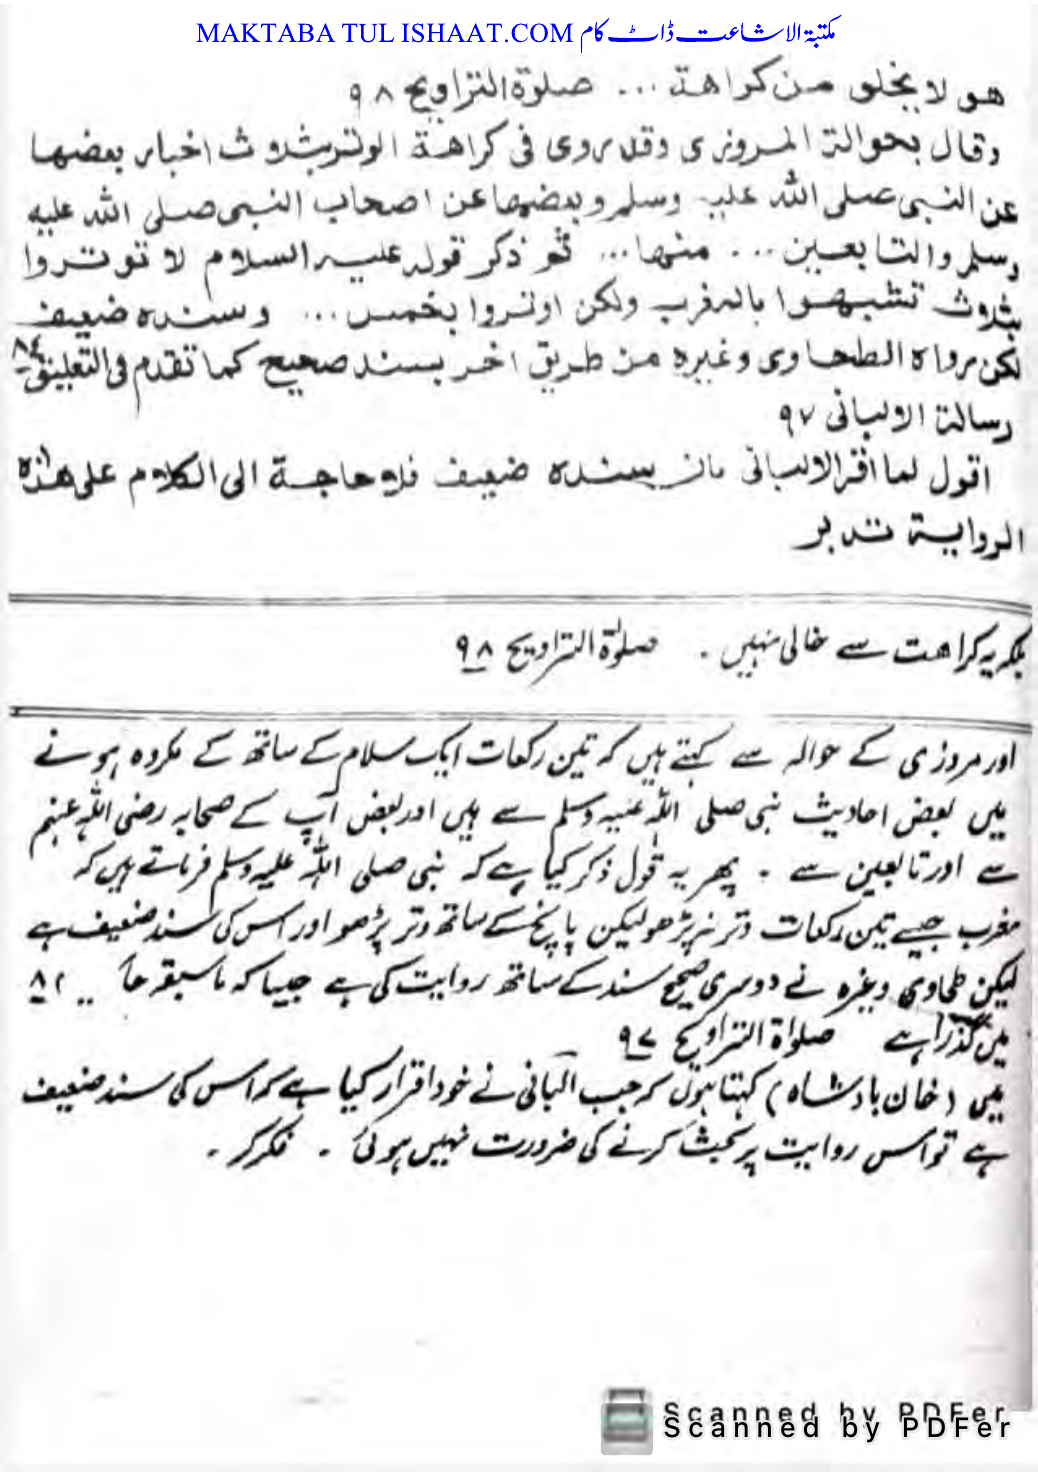 MAKTABA TUL ISHAAT.COM مکتبۃ الاشاعت ڈاٹ کام
هو لا يخلو من كراهة ... صلوة التراويح ٩٨
وقال بحوالة المروزى وقد روى فى كراهة الوتر بثلاث اخبار بعضها
عن النبى صلى الله عليه وسلم وبعضها عن اصحاب النبى صلى الله عليه
وسلم والتابعين ... منها ... ثم ذكر قوله عليه السلام لا توتروا
بثلاث تشبهوا بالمغرب ولكن اوتروا بخمس ... وسنده ضعيف
لكن رواه الطحاوى وغيره من طريق اخر بسند صحيح كما تقدم فى التعليق
رسالة الالبانى ٩٧
اقول لما اقر الالبانى بان سنده ضعيف فلا حاجة الى الكلام على هذه
الرواية تدبر
بلکہ یہ کراھت سے خالی نہیں ۔ صلوٰۃ التراویح ٩٨
اور مروزی کے حوالہ سے کہتے ہیں کہ تین رکعات ایک سلام کے ساتھ کے مکروہ ہونے
میں بعض احادیث نبی صلی اللہ علیہ وسلم سے ہیں اور بعض آپ کے صحابہ رضی اللہ عنہم
سے اور تابعین سے ۔ پھر یہ قول ذکر کیا ہے کہ نبی صلی اللہ علیہ وسلم فرماتے ہیں کہ
مغرب جیسے تین رکعات وتر نہ پڑھو لیکن پانچ کے ساتھ وتر پڑھو اور اس کی سند ضعیف ہے
لیکن طحاوی وغیرہ نے دوسری صحیح سند کے ساتھ روایت کی ہے جیسا کہ
میں گذرا ہے صلواۃ التراویح ٩٧
میں (خان بادشاہ) کہتا ہوں کہ جب البانی نے خود اقرار کیا ہے کہ اس کی سند ضعیف
ہے تو اس روایت پر بحث کرنے کی ضرورت نہیں ہوئی ۔ فکر کر ۔
Scanned by PDFer
Scanned by PDFer